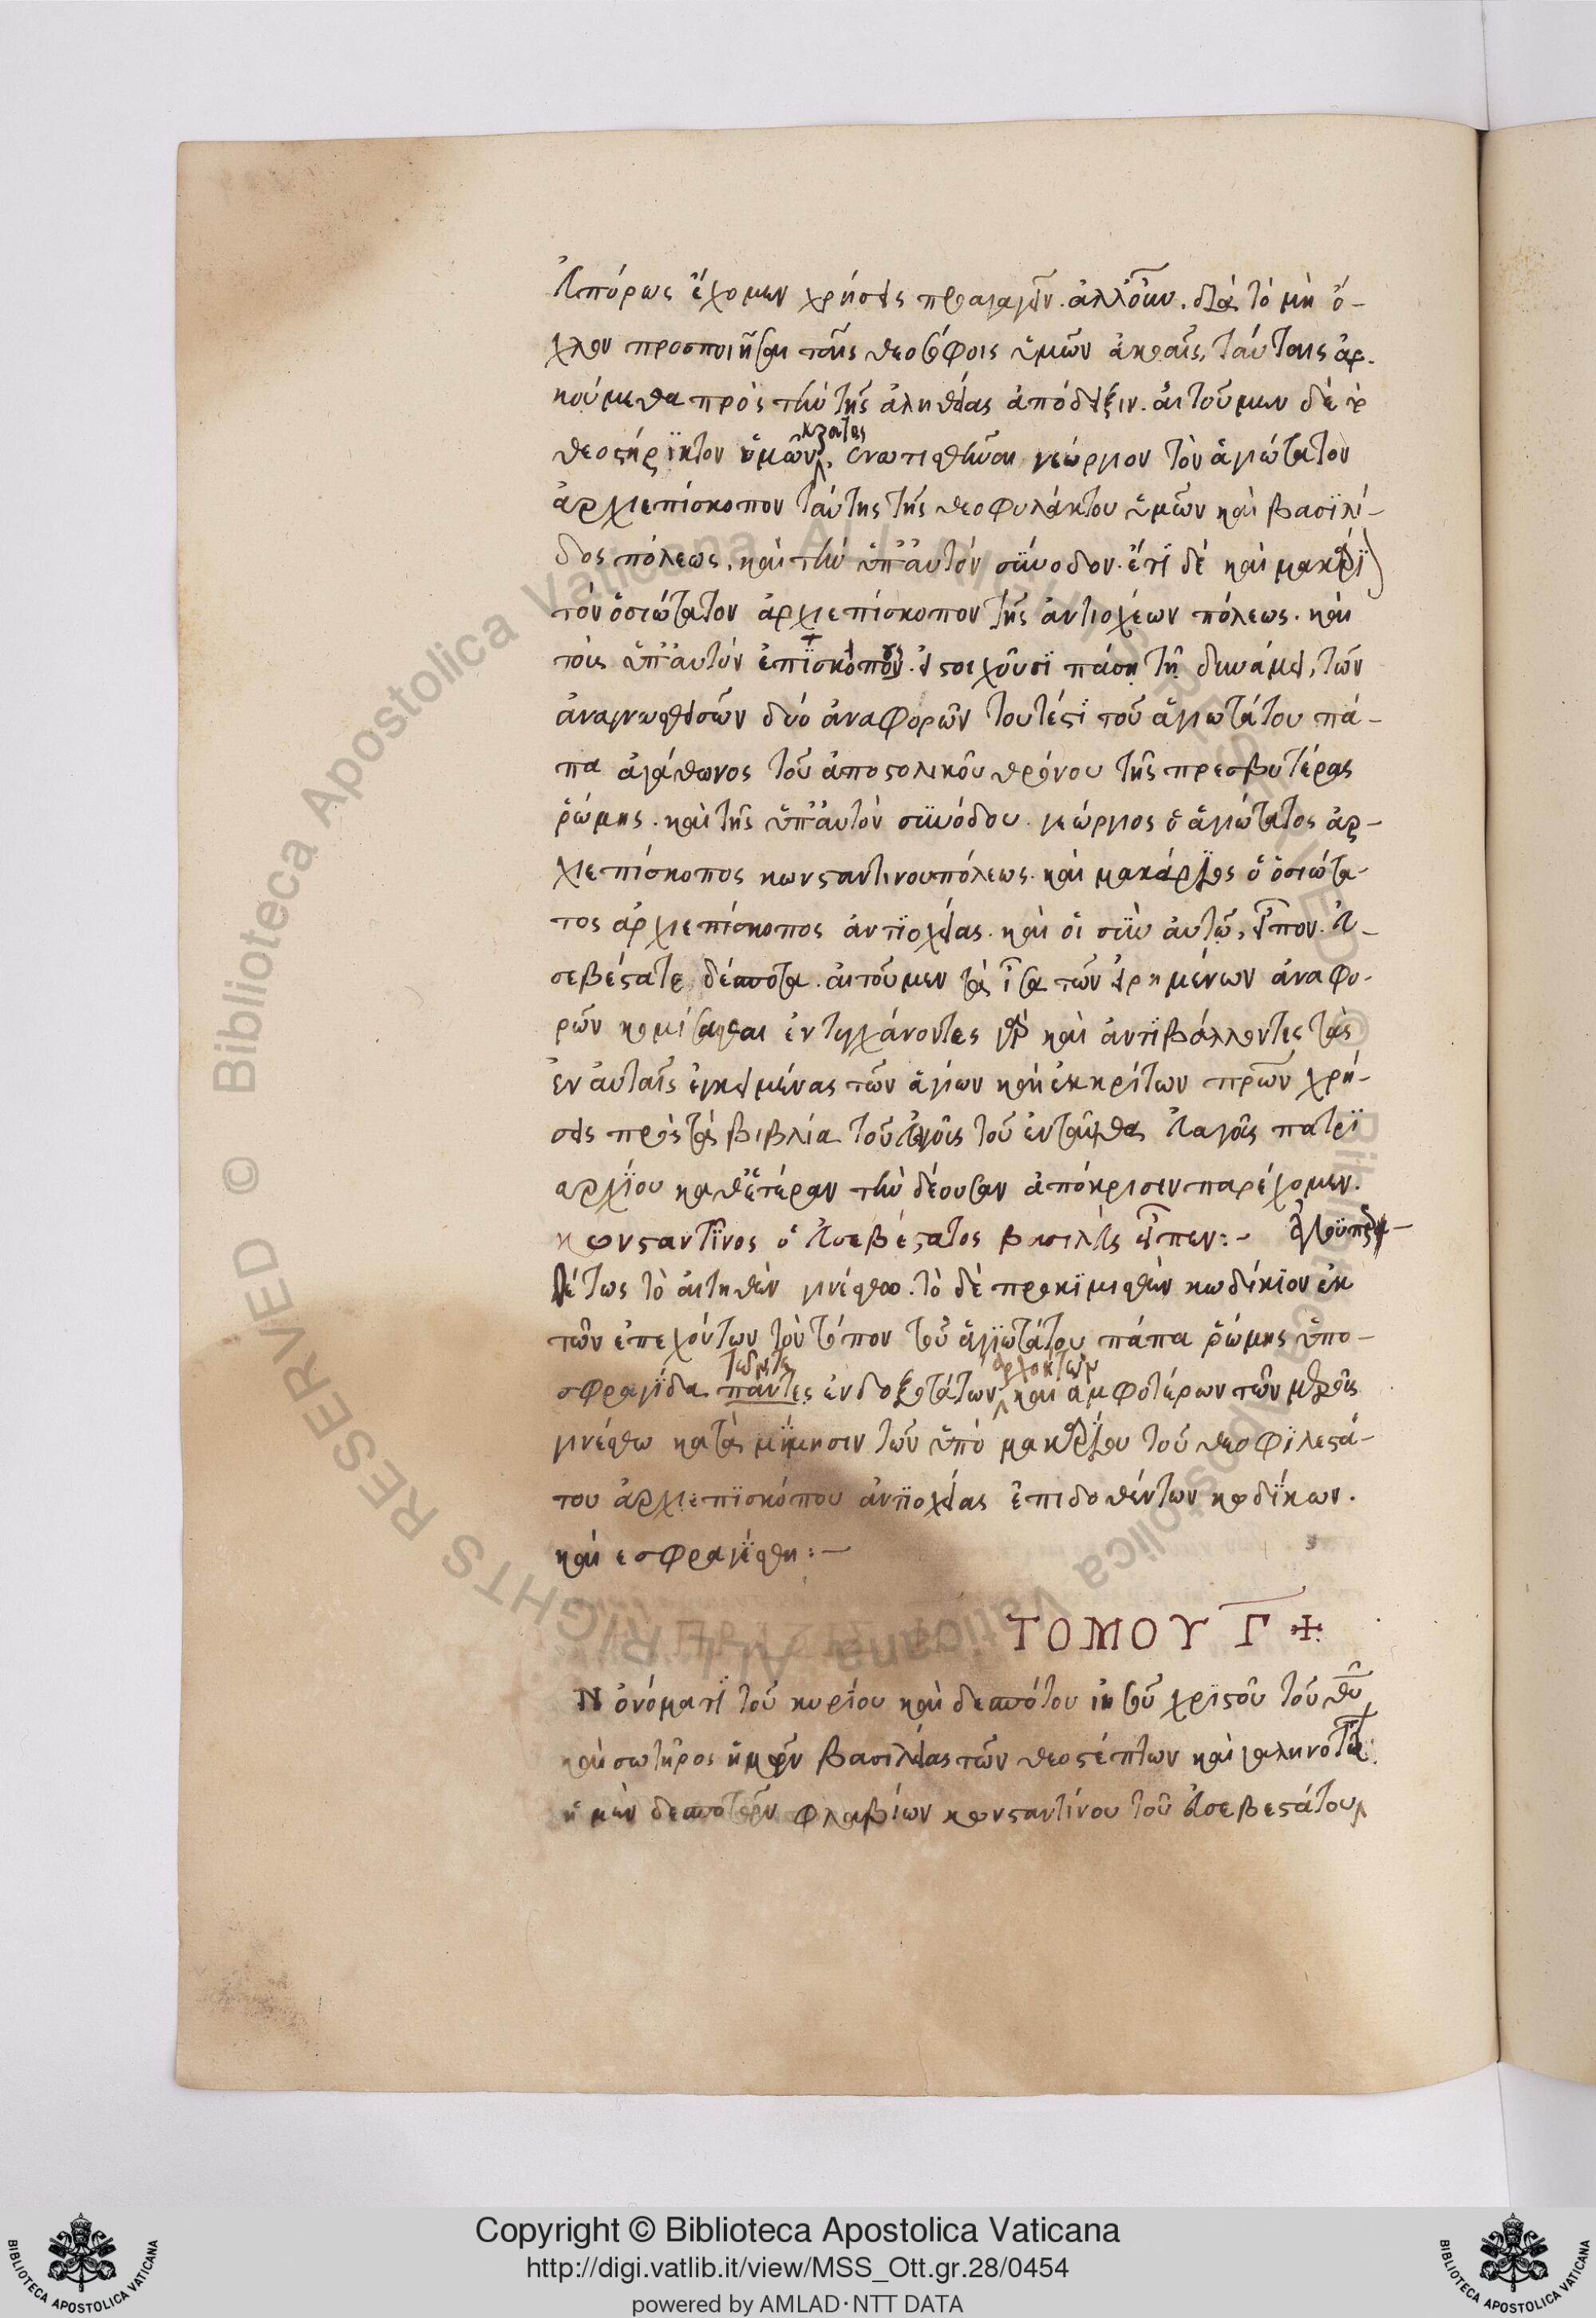 εὐπόρως ἔχομεν χρήσεις προαγαγεῖν. ἀλλ' οὖν. διὰ τὸ μὴ ὄ-
χλον προσποιῆσαι ταῖς θεοσόφοις ὑμῶν ἀκοαῖς, ταύταις ἀρ-
κούμεθα πρὸς τὴν τῆς ἀληθείας ἀπόδειξιν. αἰτοῦμεν δὲ
θεοστήρϊκτον ὑμῶν κράτος, ἐναπιτεθῆναι γεώργιον τὸν ἁγιώτατον
ἀρχιεπίσκοπον ταύτης τῆς θεοφυλάκτου ὑμῶν καὶ βασϊλί-
δος πόλεως. καὶ τὴν ὑπ' αὐτὸν σύνοδον. ἔτϊ δὲ καὶ μακάρϊ
τὸν ὁσιώτατον ἀρχιεπίσκοπον τῆς ἀντιοχέων πόλεως. καὶ
τοὺς ὑπ' αὐτὸν ἐπϊσκόπους. εἰ στοιχοῦσϊ πάσῃ τῇ δυνάμει, τῶν
ἀναγνωσθεισῶν δύο ἀναφορῶν τουτέστϊ τοῦ ἁγιωτάτου πά-
πα ἀγάθωνος τοῦ ἀποστολικοῦ θρόνου τῆς πρεσβυτέρας
ῥώμης. καὶ τῆς ὑπ' αὐτὸν συνόδου. γεώργιος ὁ ἁγιώτατος ἀρ-
χιεπίσκοπος κωνσταντινουπόλεως. καὶ μακάρϊος ὁ ὁσιώτα-
τος ἀρχιεπίσκοπος ἀντϊοχείας. καὶ οἱ σὺν αὐτῷ, εἶπον. εὐ-
σεβέστατε δέσποτα. αἰτοῦμεν τὰ ἶσα τῶν εἰρημένων ἀναφο-
ρῶν κομίσασθαι ἐντυγχάνοντες γὰρ καὶ ἀντϊβάλλοντες τὰς
ἐν αὐταῖς ἐγκειμένας τῶν ἁγίων καὶ ἐκκρίτων πρων χρή-
σεις πρὸς τὰ βιβλία τοῦ εὐαγοῦς τοῦ ἐνταῦθα εὐαγοῦς πατρϊ
αρχϊου καθ' ἑτέραν τὴν δέουσαν ἀπόκρισιν παρέχομεν.
κωνσταντῖνος ὁ εὐσεβέστατος βασιλεὺς εἶπεν:-
τὸ αἰτηθὲν γινέσθω. τὸ δὲ προκϊμισθὲν κωδίκϊον ἐκ
τῶν ἐπεχόντων τὸν τόπον τοῦ ἁγϊωτάτου πάπα ῥώμης ὑπο-
σφραγϊδα πάντες ἐνδοξοτάτων ἀρχόντων καὶ ἀμφοτέρων τῶν μέρους
γινέσθω κατὰ μϊμησιν τῶν ὑπὸ μακαρϊου τοῦ θεοφϊλεστά-
του ἀρχιεπϊσκόπου ἀντϊοχείας ἐπιδοθέντων κωδϊκων.
καὶ εσφραγϊσθη:-
ΤΟΜΟΥ Γ +
Ν ὀνόματϊ τοῦ κυρίου καὶ δεσπότου ιησοῦ χρϊστοῦ τοῦ θυ
καὶ σωτῆρος ἡμῶν βασιλείας τῶν θεοστέπτων καὶ γαληνοτάτ
ἡμῶν δεσποτῶν φλαβίων κωνσταντίνου τοῦ εὐσεβεστάτου
Copyright © Biblioteca Apostolica Vaticana
http://digi.vatlib.it/view/MSS_Ott.gr.28/0454
powered by AMLAD·NTT DATA